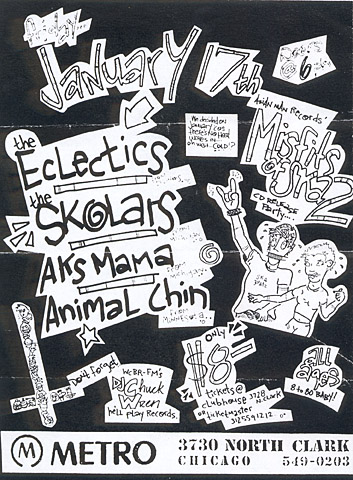 Friday...
January 17th
6
Asian Man Records'
Misfits
of Ska 2
CD Release
Party
the
Eclectics
the
Skolars
Aks Mama
Animal Chin
from
Minnesota
Don't forget!
WCBR-FM's
DJ Chuck
Wren
he'll play Records.
only
$8
tickets @
Clubhouse 3728
N. Clark
or
ticketmaster
312 559 1212
All
ages
8 to 80 Baby!
METRO
3730 NORTH CLARK
CHICAGO 549-0203